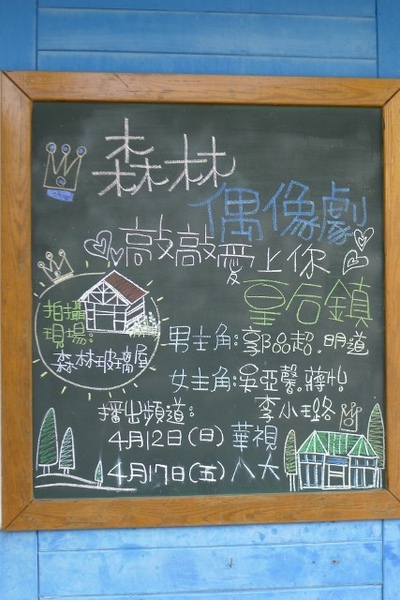 森林
偶像劇
敲敲愛上你
皇后鎮
拍攝
現場:
森林玻璃屋
男主角:郭品超.明道
女主角:吳亞馨.蔣怡
李小璐
播出頻道:
4月12日(日)華視
4月17日(五)八大